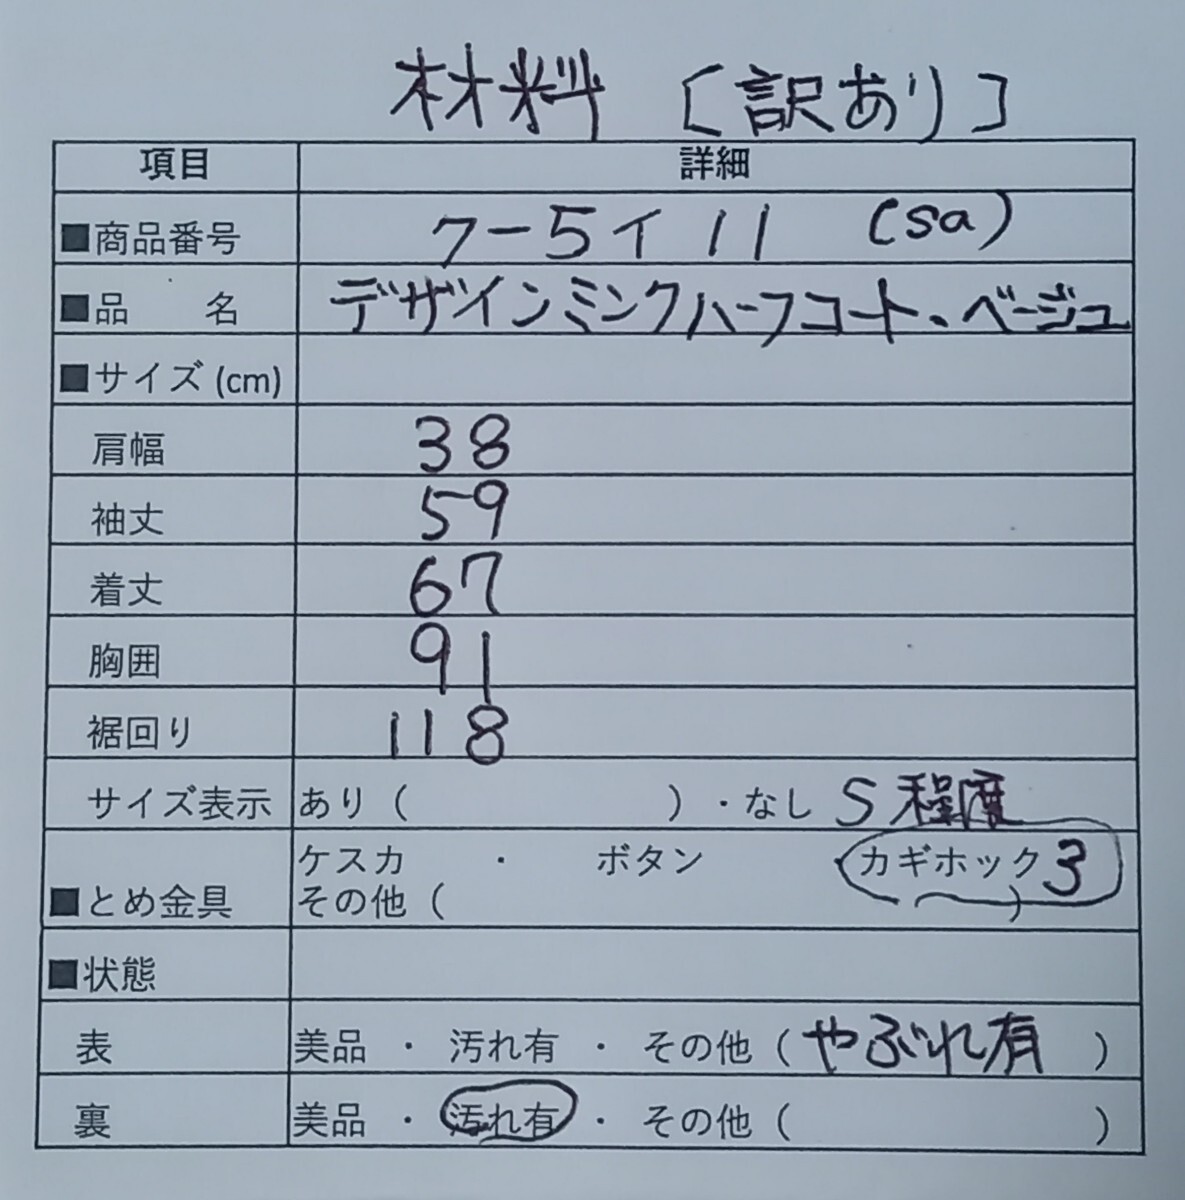 材料 〔訳あり〕
項目 詳細
■商品番号 7-5イ11 (sa)
■品 名 デザインミンクハーフコート、ベージュ
■サイズ (cm)
肩幅 38
袖丈 59
着丈 67
胸囲 91
裾回り 118
サイズ表示 あり ( ) ・なし S程度
ケスカ ・ ボタン カギホック3
■とめ金具 その他 ( )
■状態
表 美品 ・ 汚れ有 ・ その他 ( やぶれ有 )
裏 美品 ・ 汚れ有 ・ その他 ( )